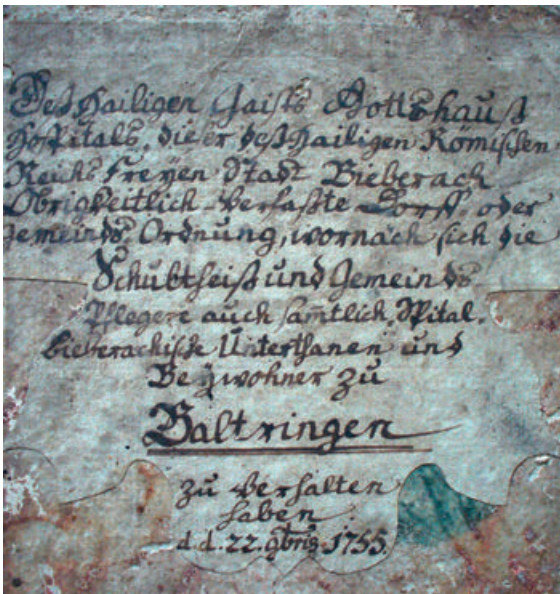 Deß Hailigen Gaists Gottshauß
Hospitals, dieser deß Hailigen Römischen
Reichs Freyen Statt Bieberach
Obrigkeitlich-Verfaßte Dorff- oder
Gemeinds-Ordnung, wornach sich die
Schultheiß und Gemeinds
Pflegere auch samtlich Spital-
bieberachische Unterthanen und
Beywohner zu
Baltringen
zu Verhalten
haben.
d.d. 22. 9bris 1755.